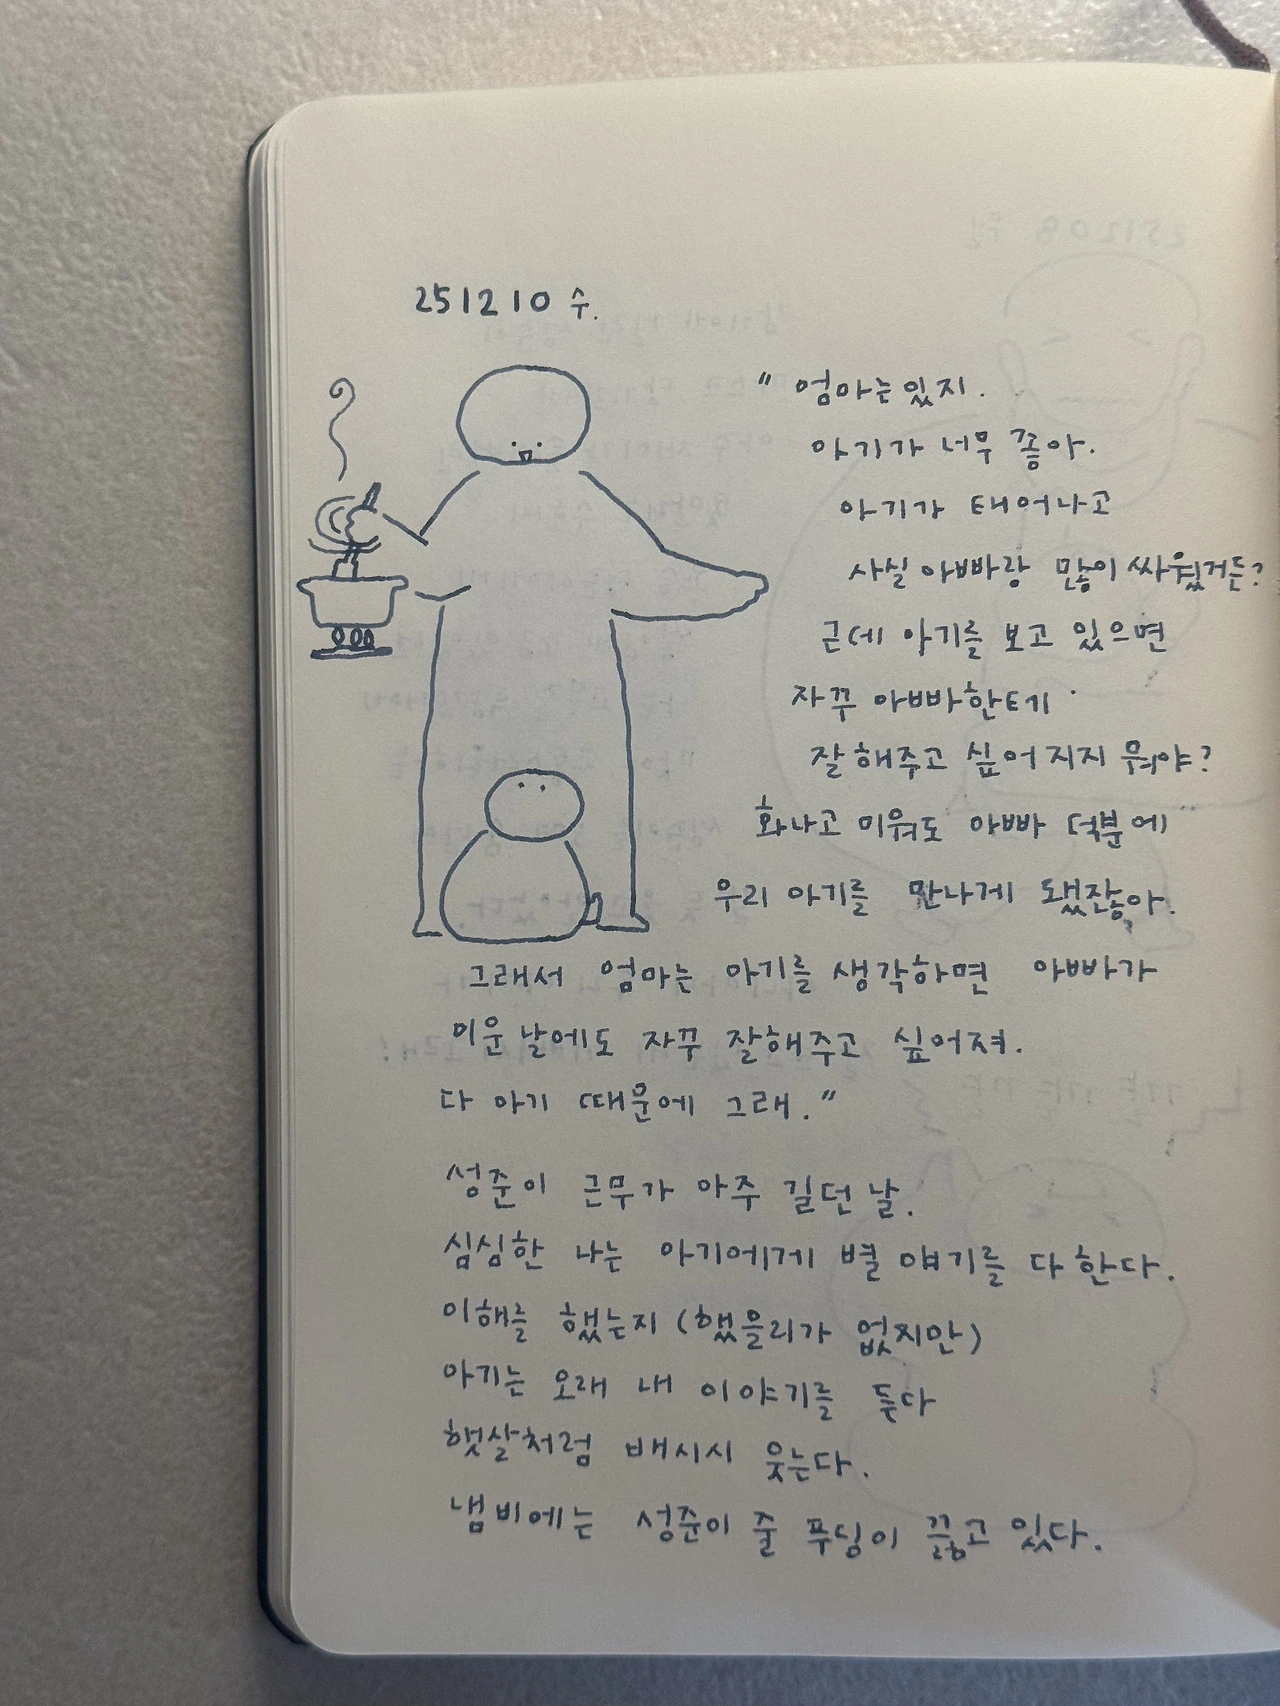 251210 수.
" 엄마는 있지.
아기가 너무 좋아.
아기가 태어나고
사실 아빠랑 많이 싸웠거든?
근데 아기를 보고 있으면
자꾸 아빠한테
잘해주고 싶어지지 뭐야?
화나고 미워도 아빠 덕분에
우리 아기를 만나게 됐잖아.
그래서 엄마는 아기를 생각하면 아빠가
미운 날에도 자꾸 잘해주고 싶어져.
다 아기 때문에 그래."
성준이 근무가 아주 길던 날.
심심한 나는 아기에게 별 얘기를 다 한다.
이해를 했는지 (했을리가 없지만)
아기는 오래 내 이야기를 듣다
햇살처럼 배시시 웃는다.
냄비에는 성준이 줄 푸딩이 끓고 있다.